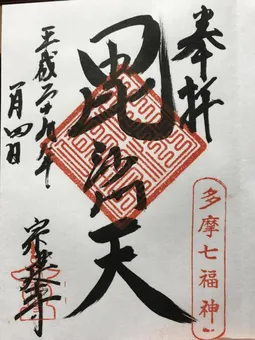 奉拝
多摩七福神
毘沙門天
平成二十九年
一月四日
宗三寺